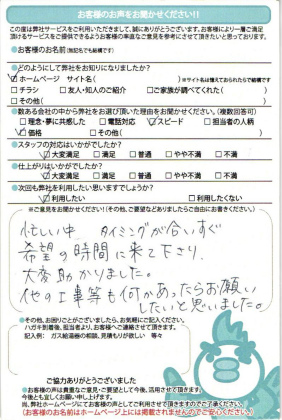 お客様のお声をお聞かせください!!
この度は弊社サービスをご利用いただきまして、誠にありがとうございます。お客様により一層ご満足
頂けるサービスをご提供できるようお客様の率直なご意見を参考にさせて頂きたいと思っております。
●お客様のお名前(無記名でも結構です)
●どのようにして弊社をお知りになりましたか?
☑ホームページ サイト名( )※サイト名は憶えておられたらで結構です
□チラシ □友人・知人のご紹介 □ご家族が調べてくれた(
□その他( )
●数ある会社の中から弊社をお選び頂いた理由をお聞かせください。(複数回答可)
□理念・夢に共感した □電話対応 ☑スピード □担当者の人柄
☑価格 □その他( )
●スタッフの対応はいかがでしたか?
☑大変満足 □満足 □普通 □やや不満 □不満
●仕上がりはいかがでしたか?
☑大変満足 □満足 □普通 □やや不満 □不満
●次回も弊社を利用したい思いますでしょうか?
☑利用したい □利用したくない
※ご意見をお聞かせください!(その他、ご要望などありましたらご自由にお書きください。)
忙しい中、タイミングが合いすぐ
希望の時間に来て下さり、
大変助かりました。
他の工事等も何かあったらお願い
したいと思いました。
●その他、お困りごとがございましたら、お気軽にご記入ください。
ハガキ到着後、担当者より、お客様へご連絡させて頂きます。
記入例: ガス給湯器の相談、見積もりが欲しい 等々
ご協力ありがとうございました
●お客様の声は貴重なご意見・ご要望として今後、活用させて頂きます。
今後とも宜しくお願い申し上げます。
尚、弊社ホームページにてお客様の声としてご利用させて頂きますのでご了承ください。
(お客様のお名前はホームページ上には掲載されませんのでご安心ください。)